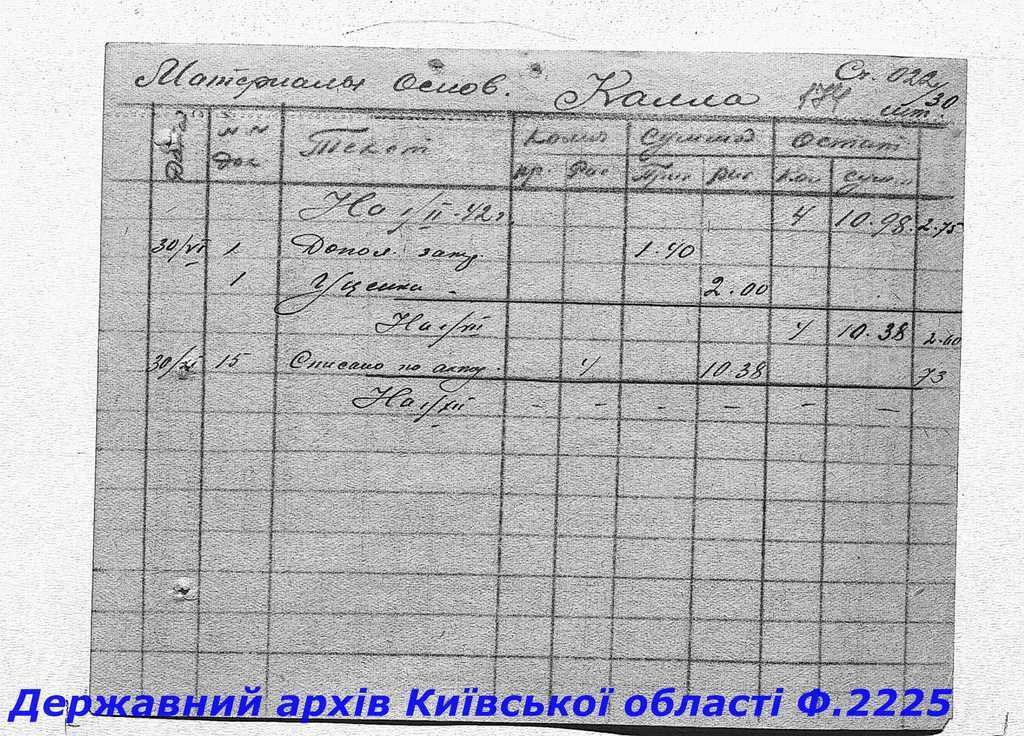 Материалы основ. Калла Сч. 02а
174 30
шт.
Дата №№ док Текст Колич Сумма Остат
пр. рас Прих рас кол сумм
На 1/II-42г. 4 10.98 2-75
30/VI 1 Допол. 1.40
1 Уценка - 2.00
На 1/VII 4 10.38 2-60
30/XI 15 Списано по акту. 4 10.38 73
На 1/XII - - - - - -
Державний архів Київської області Ф.2225